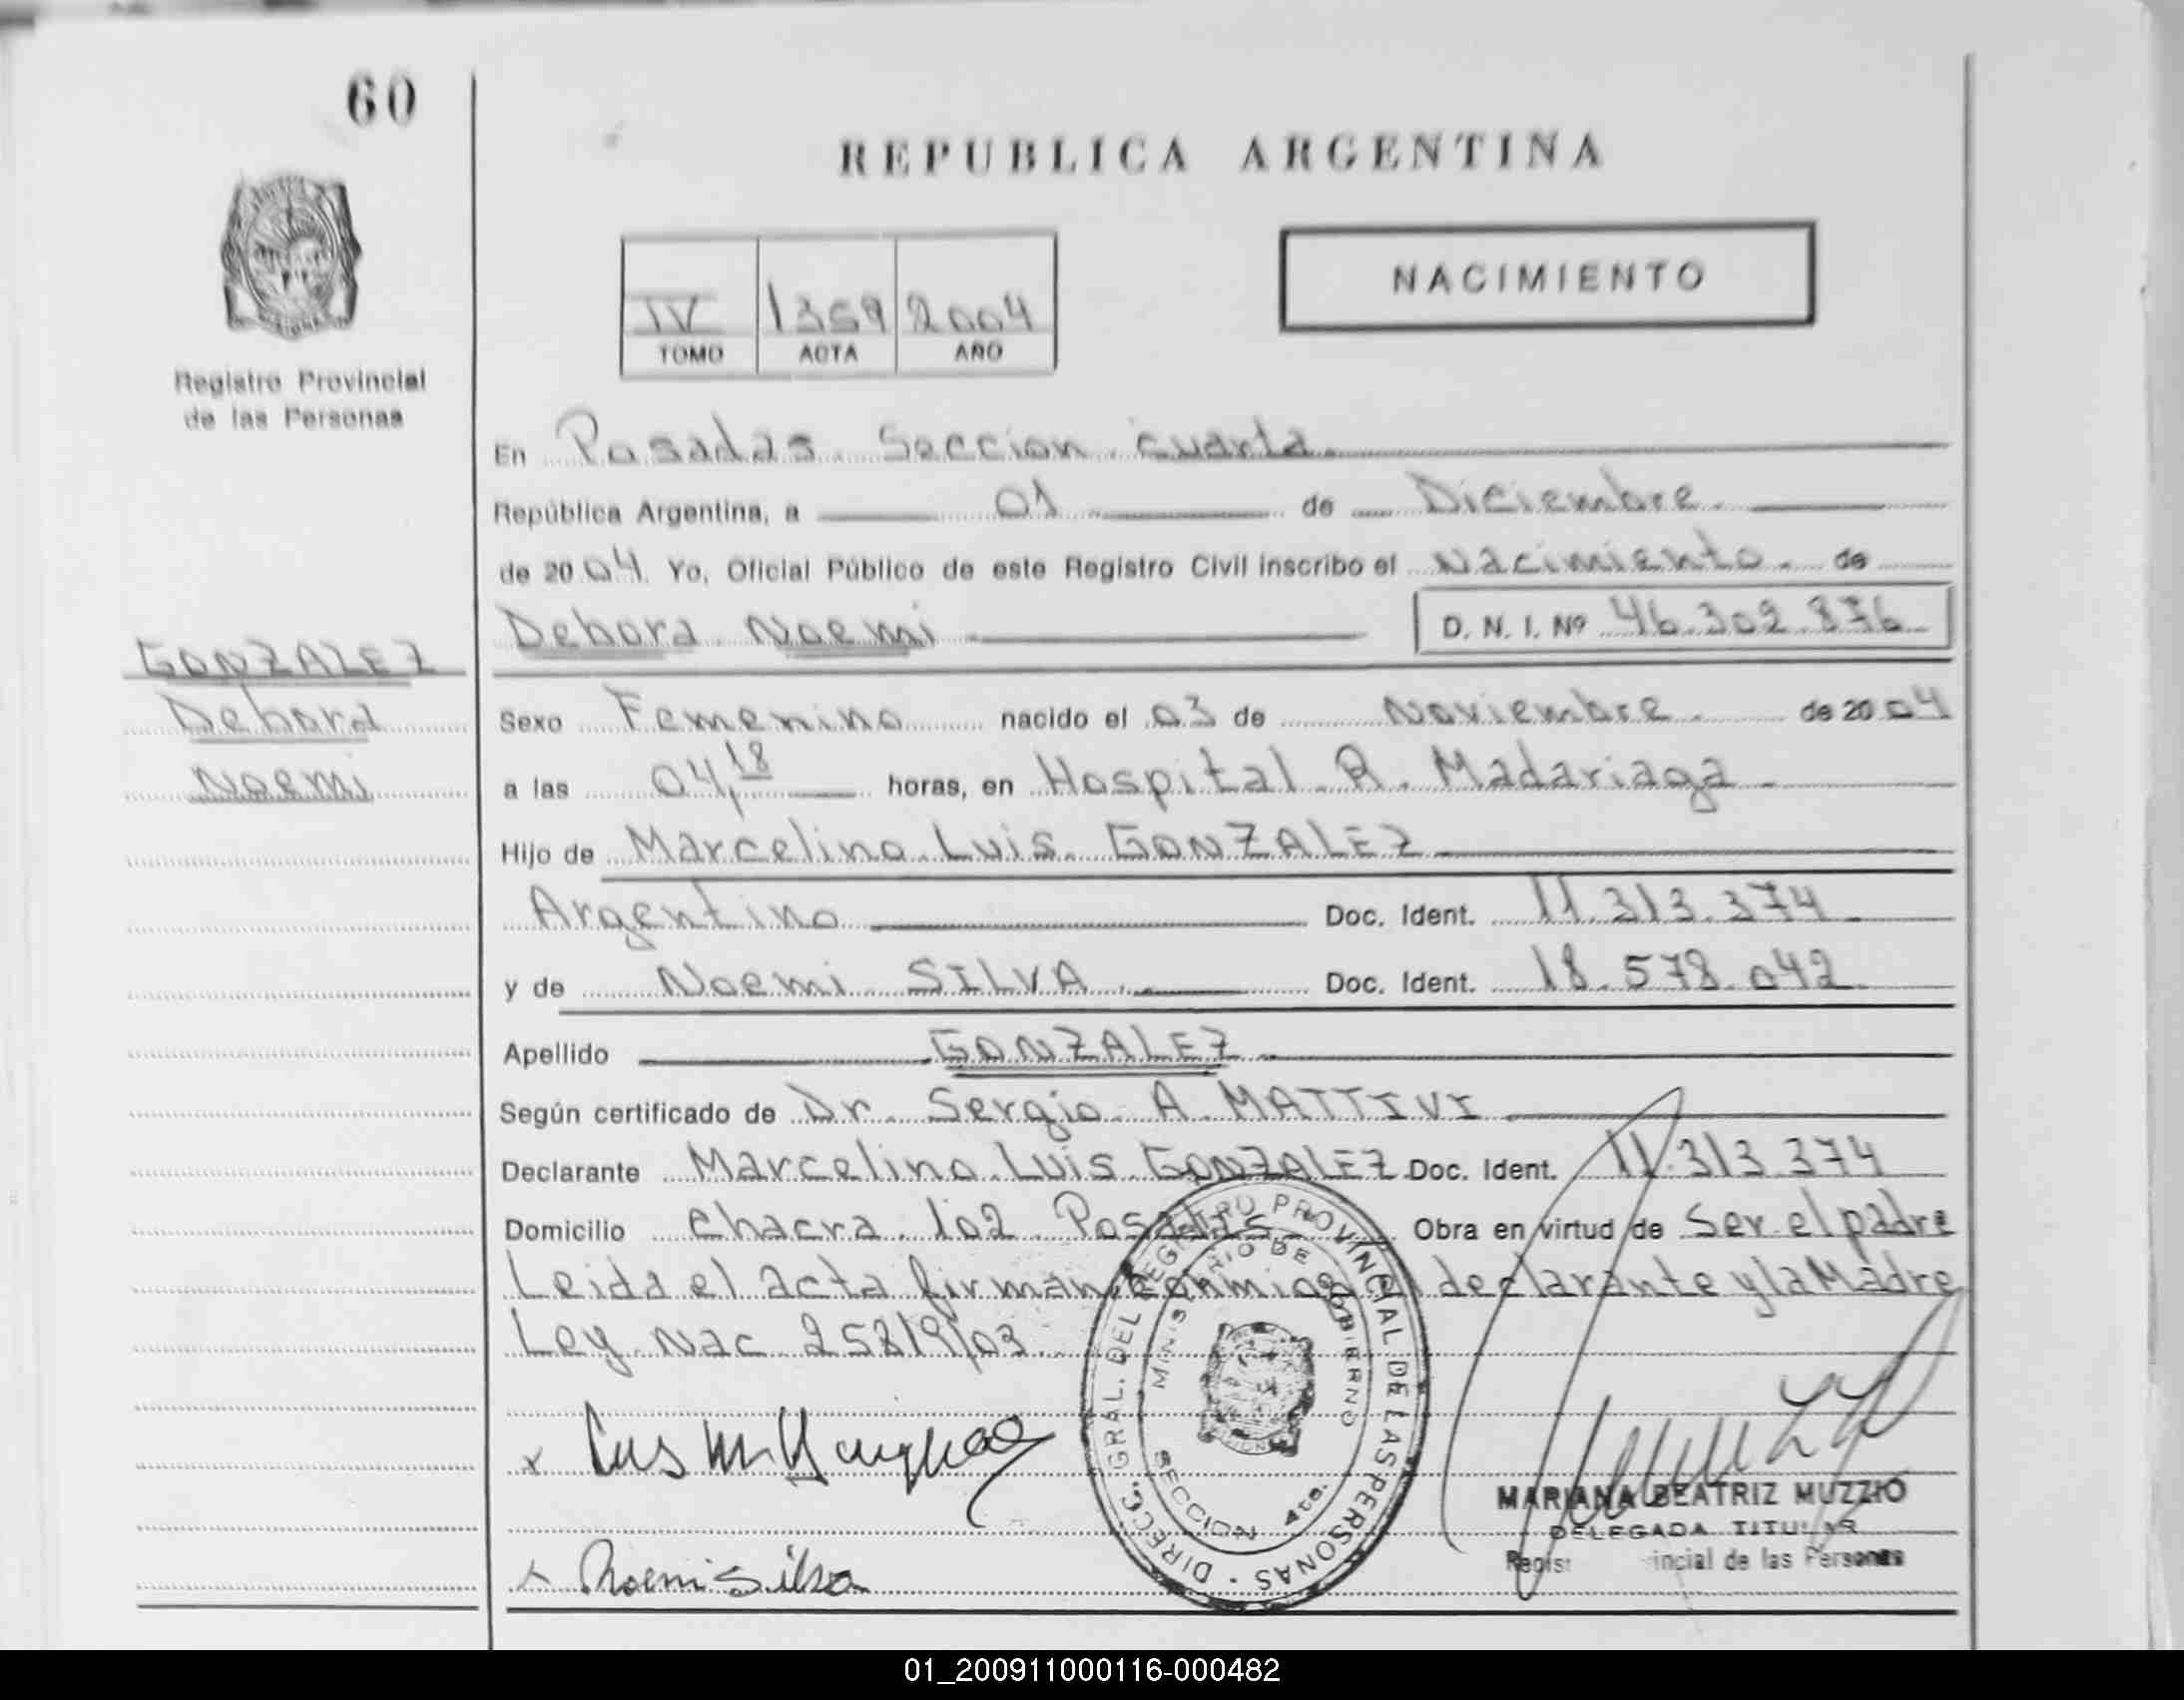 60
REPUBLICA ARGENTINA
IV 1359 2004
TOMO ACTA AÑO
NACIMIENTO
Registro Provincial
de las Personas
En Posadas Seccion cuarta
República Argentina, a 01 de Diciembre
de 2004 Yo, Oficial Público de este Registro Civil inscribo el Nacimiento de
Debora Noemi D. N. I. Nº 46.302.876
GONZALEZ
Debora
Noemi
Sexo Femenino nacido el 03 de Noviembre de 2004
a las 04,18 horas, en Hospital R. Madariaga
Hijo de Marcelino Luis GONZALEZ
Argentino Doc. Ident. 11.313.374
y de Noemi SILVA Doc. Ident. 18.578.042
Apellido GONZALEZ
Según certificado de Dr. Sergio A. MATTIVI
Declarante Marcelino Luis GONZALEZ Doc. Ident. 11.313.374
Domicilio Chacra 102 Posadas Obra en virtud de Ser el padre
Leida el acta firman conmigo el declarante y la Madre
Ley Nac 25819/03
DIRECC. GRAL. DEL REGISTRO PROVINCIAL DE LAS PERSONAS
MINISTERIO DE GOBIERNO
SECCION 4ta.
x
x Noemi Silva
MARIANA BEATRIZ MUZZIO
DELEGADA TITULAR
Regist incial de las Personas
01_200911000116-000482